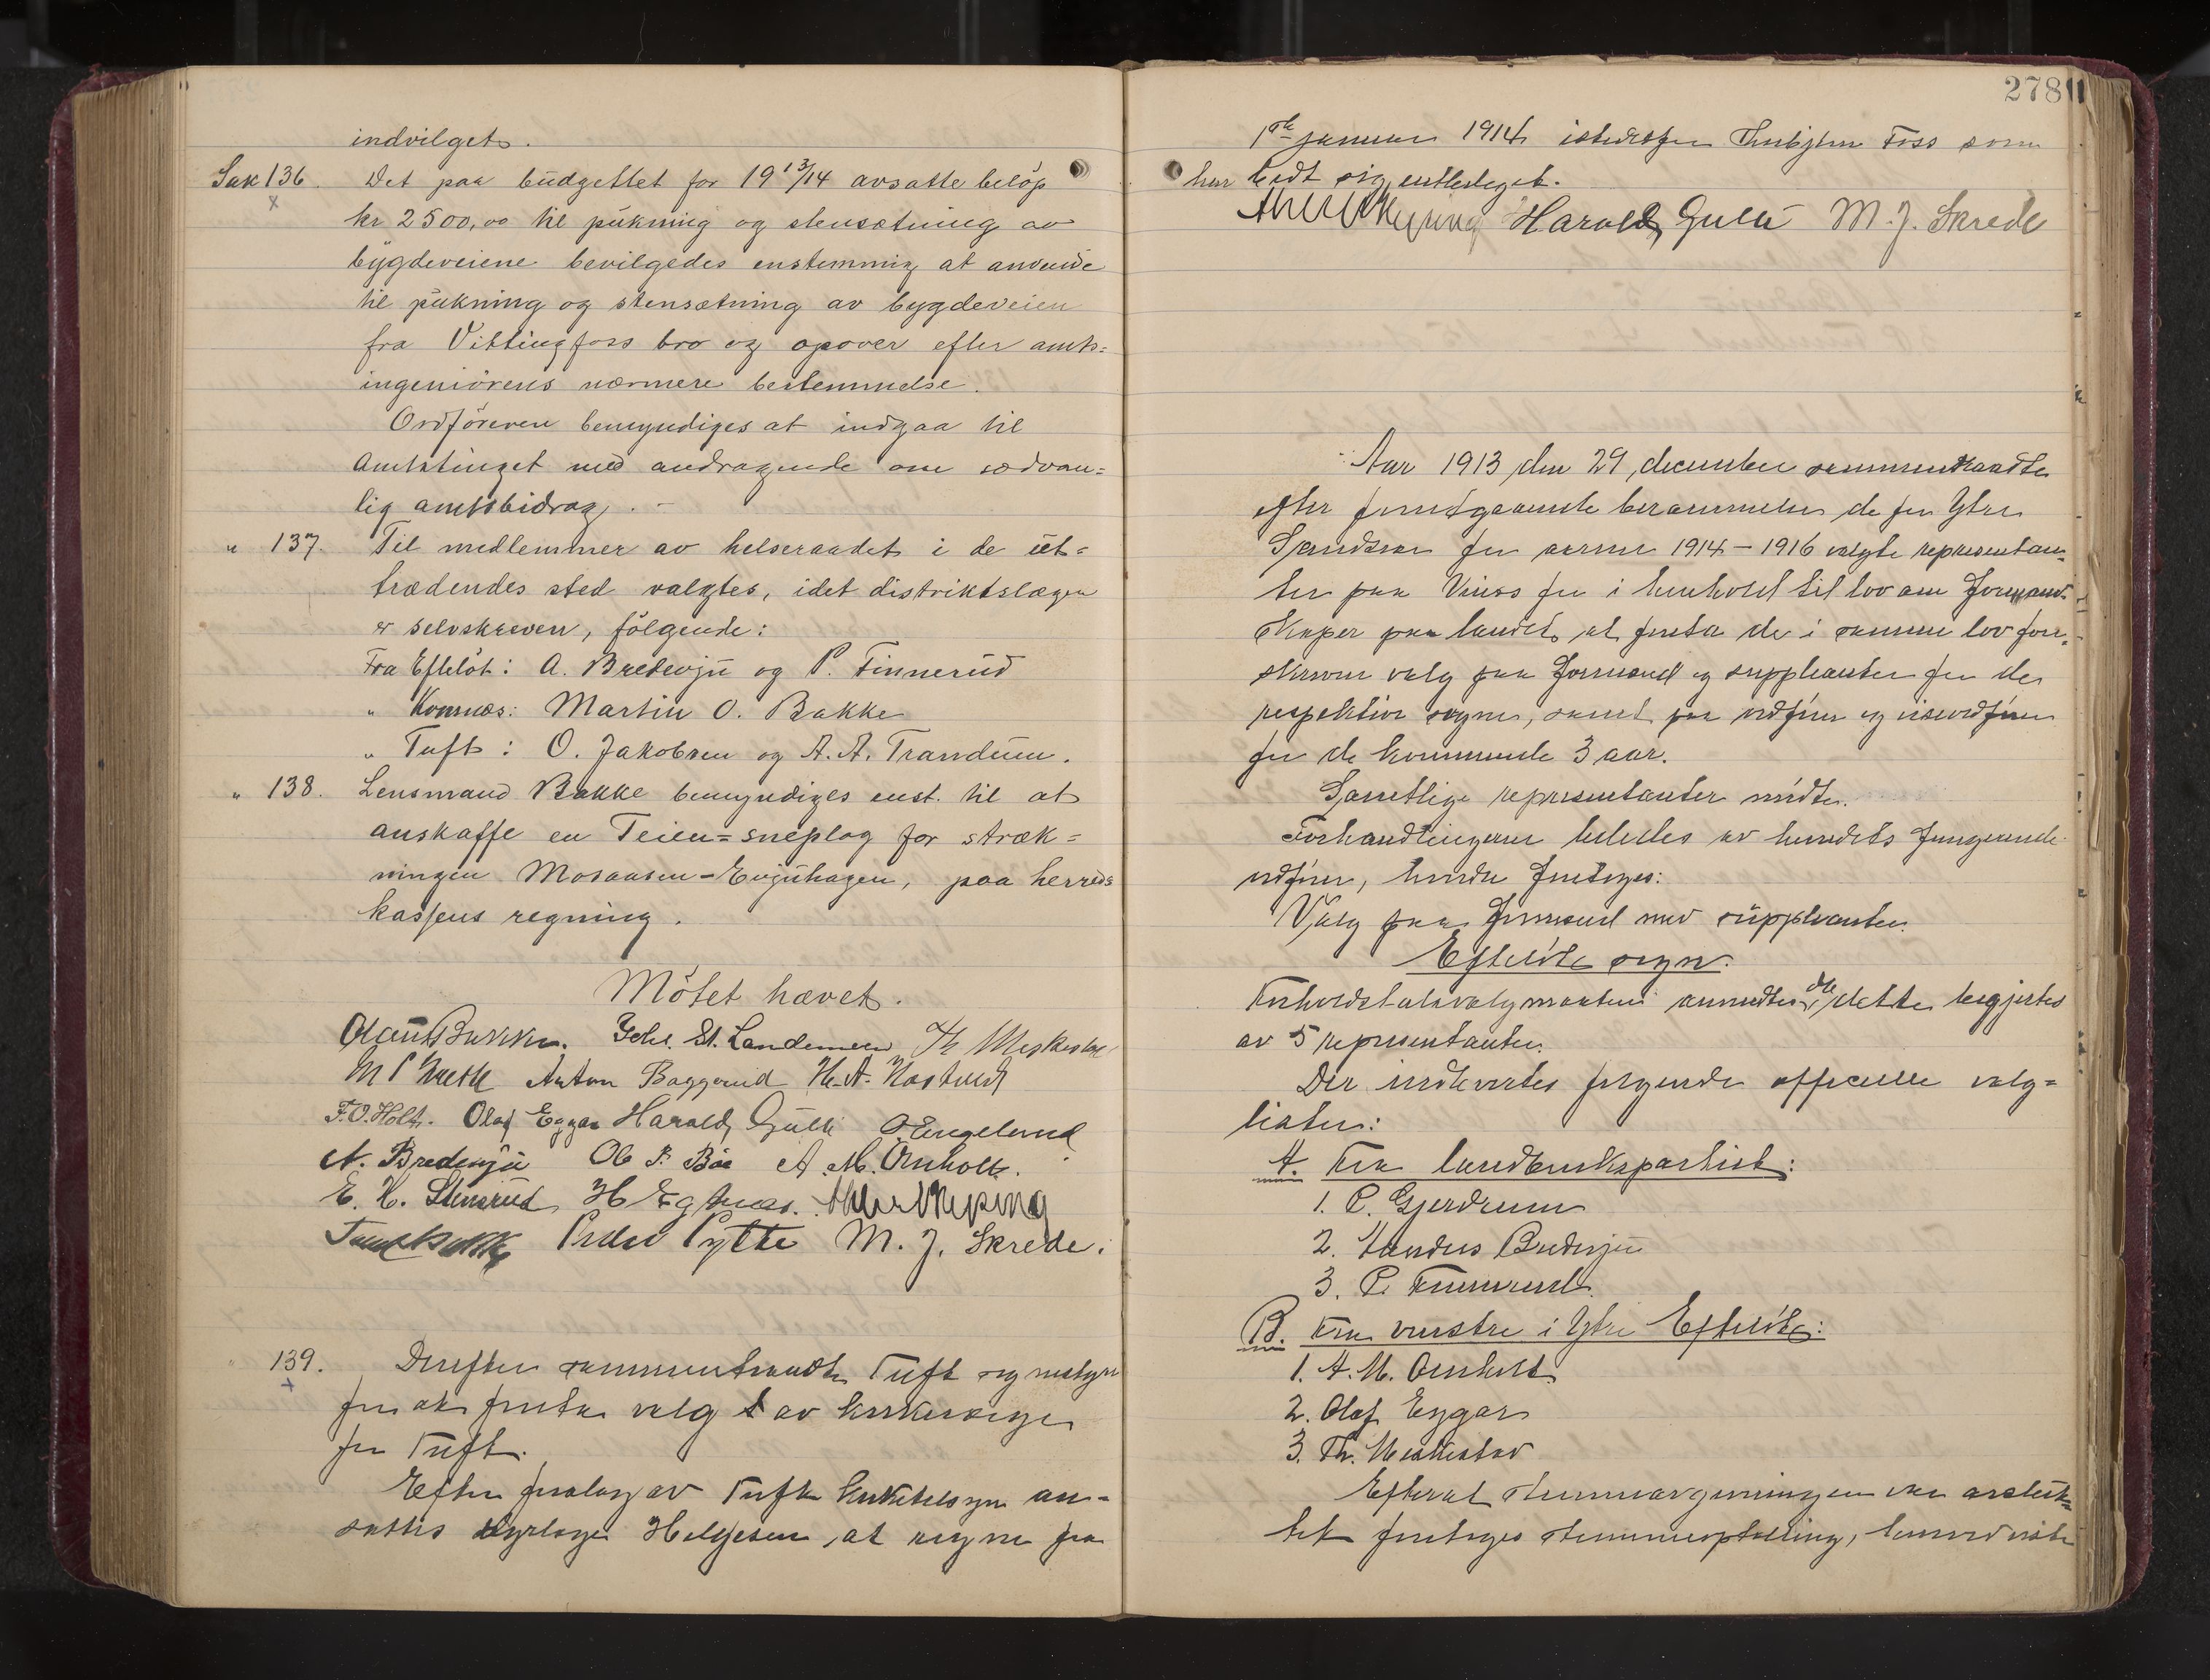 indvilget.
Sak 136. Det paa budgettet for 19 13/14 avsatte beløp
kr 2500,00 til pukning og stensætning av
bygdeveiene bevilgedes enstemmig at anvende
til pukning og stensætning av bygdeveien
fra Vittingfoss bro og opover efter amts=
ingeniørens nærmere bestemmelse.
Ordføreren bemyndiges at indgaa til
Amtstinget med andragende om sedvan=
lig amtsbidrag. -
" 137. Til medlemmer av helseraadet i de ut=
trædendes sted valgtes, idet distriktslægen
er selvskreven, følgende:
Fra Efteløt: A. Bredevju og P. Finnerud
" Komnæs: Martin O. Bakke
" Tuft: O. Jakobsen og A. A. Trandum.
" 138. Lensmand Bakke bemyndiges enst. til at
anskaffe en Teien=sneplog for stræk=
ningen Mosaasen-Evjuhagen, paa herreds
kassens regning.
Møtet hævet.
Olaus Bakke. Joh. St. Landemeen Th Meskestad
Anton Baggerud H. A.
F. O. Holt. Olaf Eggar Harald Gulli O Engelund
A. Bredevju Ole P. Bøe A. M. Ørnholt.
E. H. Stensrud H Egtnæs.
Peder Pytte M. J. Skrede.
" 139. Derefter sammentraadte Tuft sognestyre
for at foreta valg av kirkeverge
for Tuft.
Efter forslag av Tuft kirketilsyn an=
sattes dyrlæge Helgesen, at regne fra
278
1ste januar 1914 istedetfor Thorbjørn Foss som
har bedt sig entlediget.
Harald Gulli M. J. Skrede
Aar 1913 den 29 december sammentraadte
efter forutgaaende berammelse de for Ytre
Sandsvær for aarene 1914-1916 valgte representan=
ter paa Vinæs for i henhold til lov om Formand=
skaper paa landet, at foreta de i samme lov fore=
skrevne valg paa formænd og suppleanter for de
respektive sogne, samt paa ordfører og viseordfører
for de kommende 3 aar.
Samtlige representanter mødte.
Forhandlingerne lededes av herredets fungerende
ordfører, hvorda foretoges:
Valg paa formænd med suppleanter.
Efteløts sogn.
Forholdstalsvalgmaaten anvendtes, da dette begjærtes
av 5 representanter.
Der indlevertes følgende officielle valg=
lister:
A. Fra landbrukspartiet:
1. P. Gjerdrum
2. Anders Bredevju
3. P. Finnerud
B. Fra venstre i Ytre Efteløt:
1. A. M. Ørnholt
2. Olaf Eggar
3. Th. Meskestad
Efterat stemmeavgivningen var avslut=
tet foretoges stemmeoptælling, hvorved viste